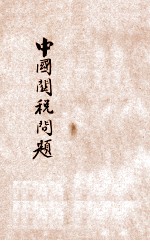 中國關税問題